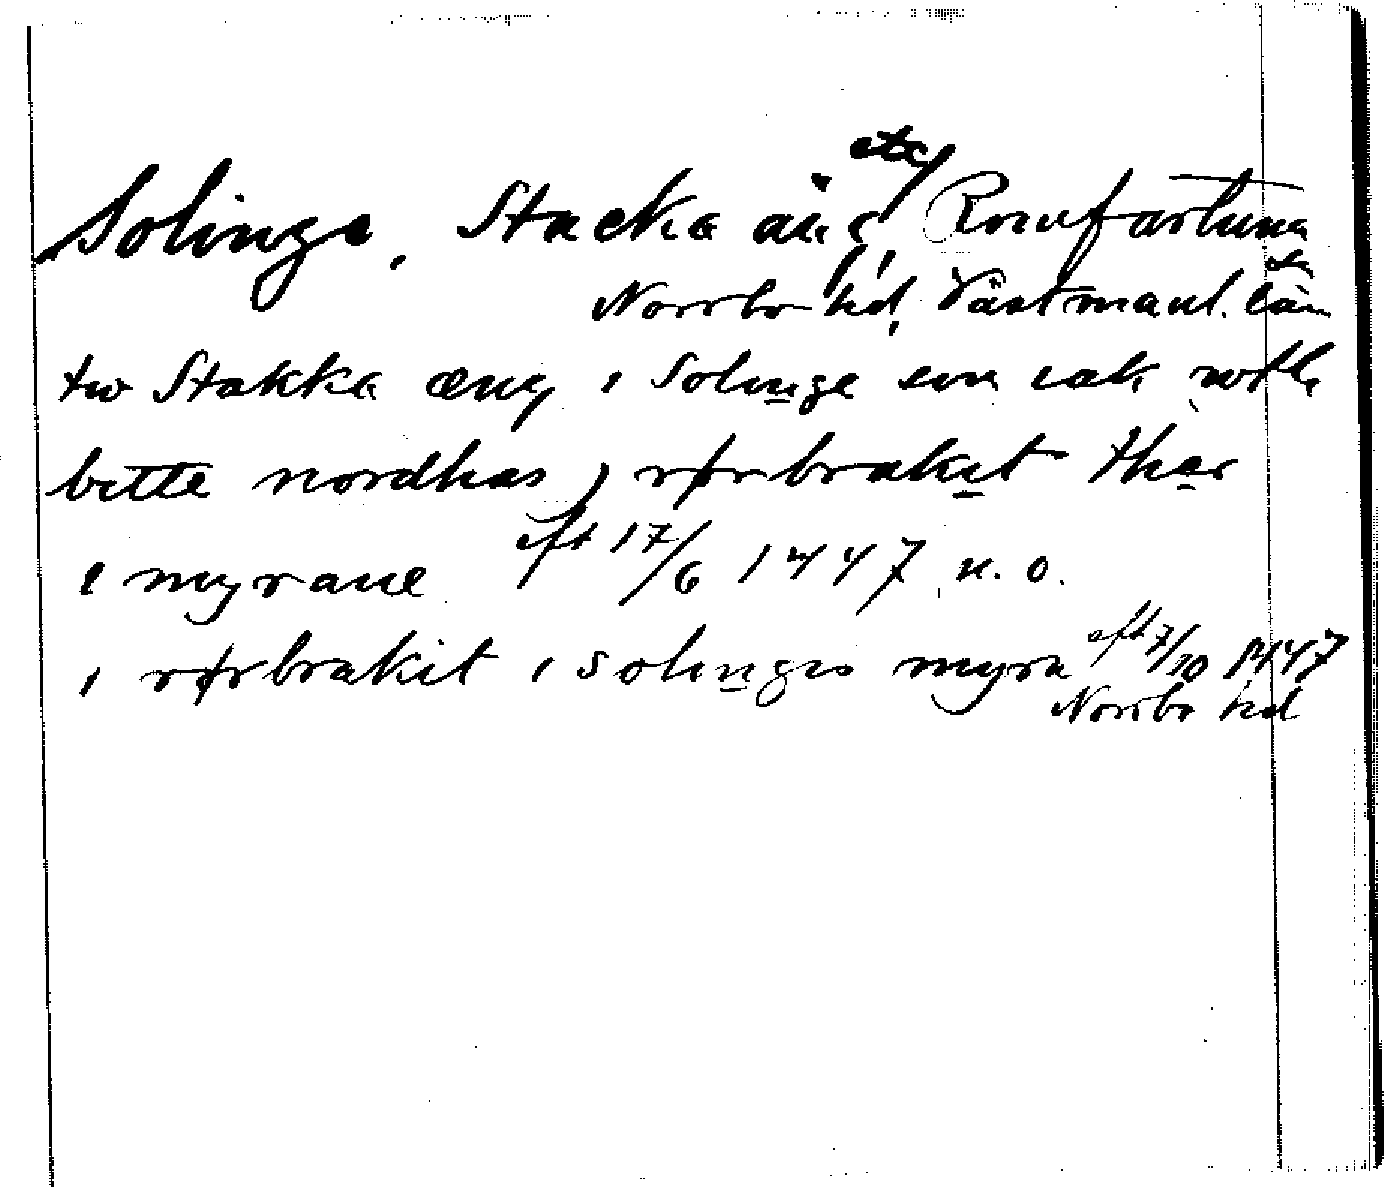 etc
Solinge, Stacka äng, Romfartuna sn
Norrbo hd, Västmanl. län
tw Stakka æng i Solinge een rak woth
bitte nordhas i rørbrakit ther
i myrane eft 17/6 1447 n. o.
i rørbrakit i solingis myra eft 7/10 1447
Norrbo hd